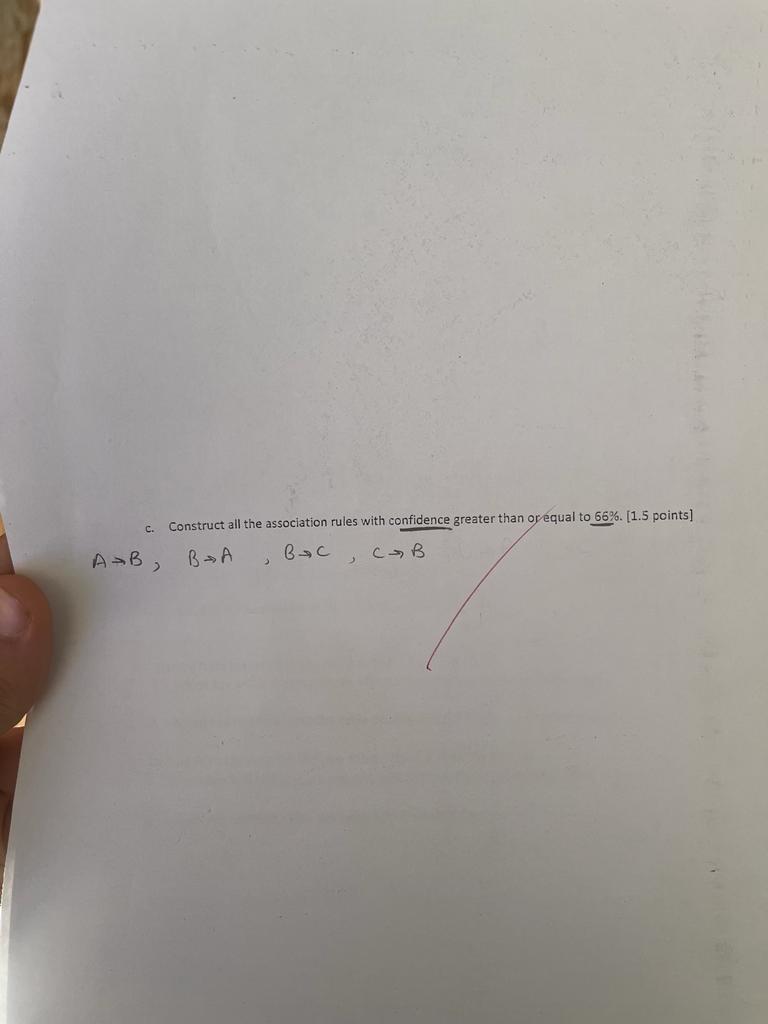 c. Construct all the association rules with confidence greater than or equal to 66%. [1.5 points]
A→B, B→A, B→C, C→B